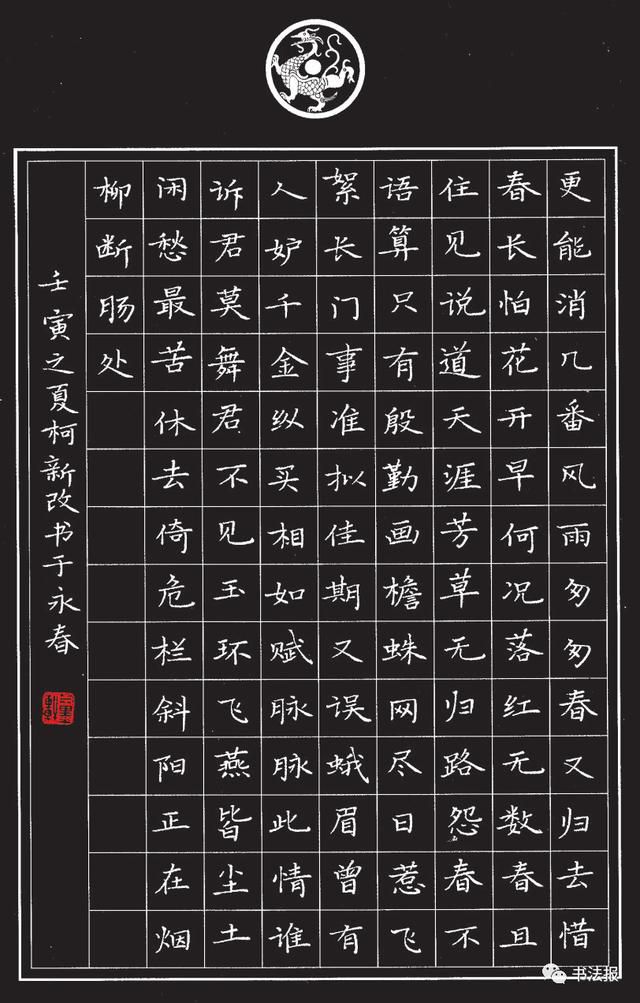 更能消几番风雨匆匆春又归去惜
春长怕花开早何况落红无数春且
住见说道天涯芳草无归路怨春不
语算只有殷勤画檐蛛网尽日惹飞
絮长门事准拟佳期又误蛾眉曾有
人妒千金纵买相如赋脉脉此情谁
诉君莫舞君不见玉环飞燕皆尘土
闲愁最苦休去倚危栏斜阳正在烟
柳断肠处
壬寅之夏柯新改书于永春
书法报